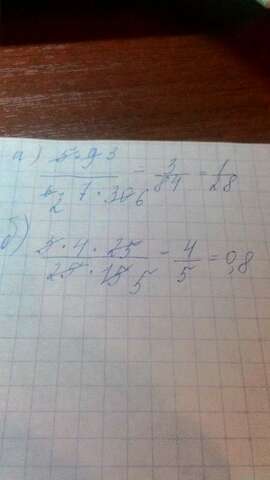 а) 5·9 3 / 6 2 · 7 · 30 6 = 3/84 = 1/28
б) 5 · 4 · 25 / 25 · 15 5 = 4/5 = 0,8